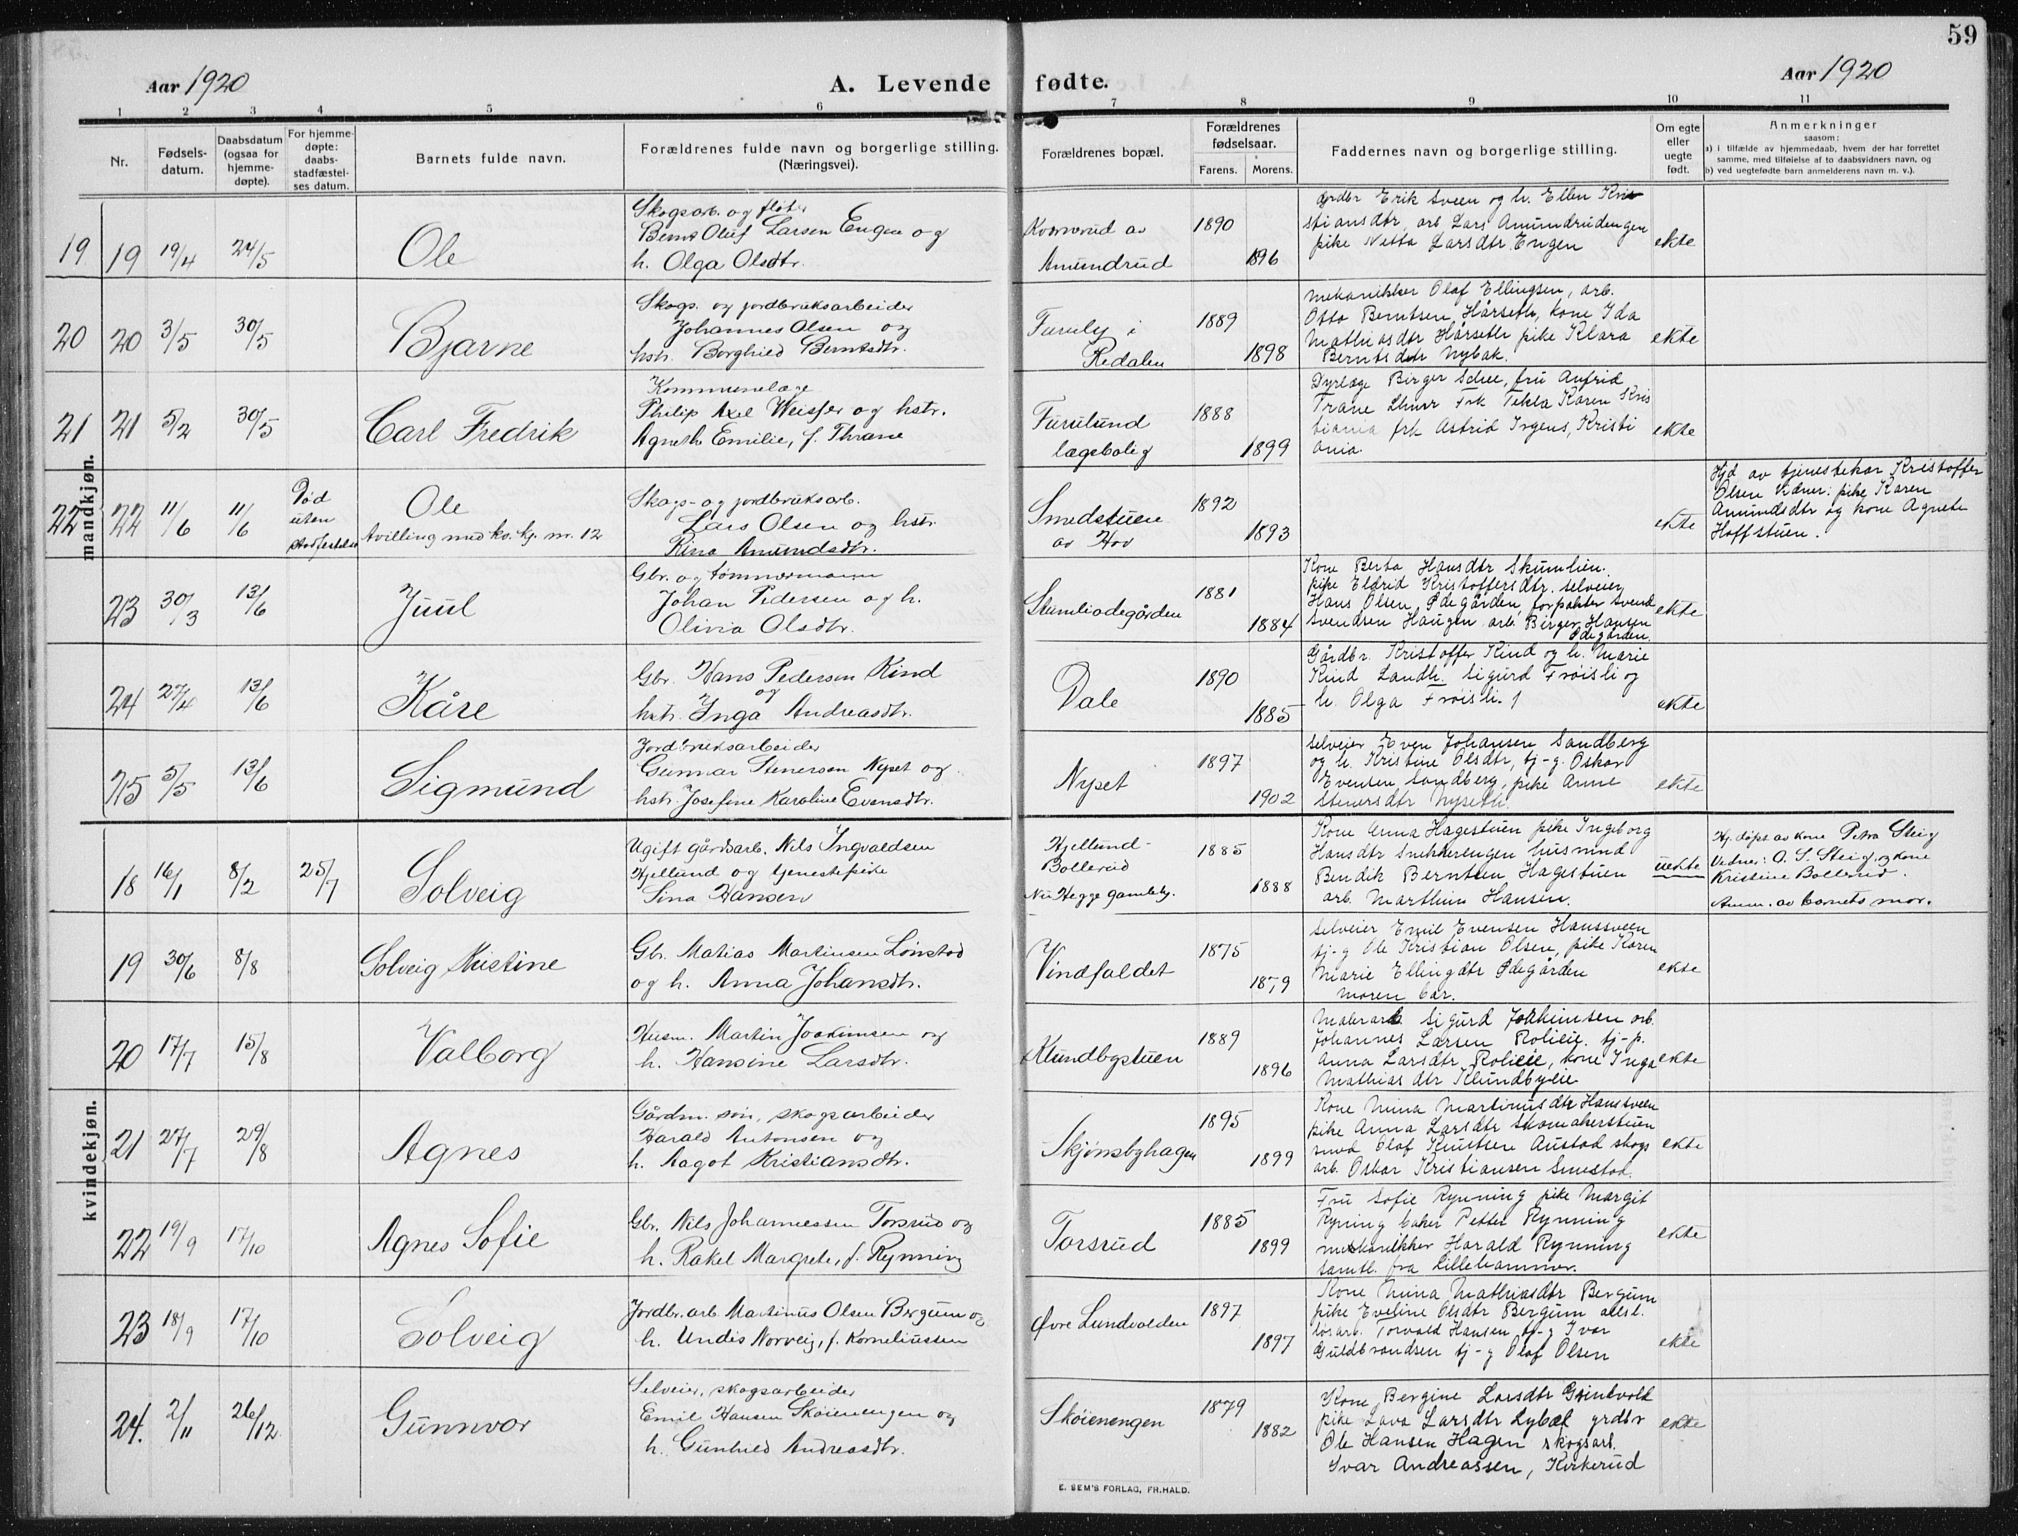 59
Aar 1920
A. Levende fødte.
Aar 1920
1 2 3 4 5 6 7 8 9 10 11
Nr.
Fødsels-
datum.
Daabsdatum
(ogsaa for
hjemme-
døpte).
For hjemme-
døpte:
daabs-
stadfæstel-
ses datum.
Barnets fulde navn.
Forældrenes fulde navn og borgerlige stilling.
(Næringsvei).
Forældrenes bopæl.
Forældrenes
fødselsaar.
Farens. Morens.
Faddernes navn og borgerlige stilling.
Om egte
eller
uegte
født.
Anmerkninger
saasom:
a) i tilfælde av hjemmedaab, hvem der har forrettet
samme, med tilføielse af to daabsvidners navn, og
b) ved uegtefødte barn anmelderens navn m. v.).
mandkjøn.
19 19 19/4 24/5 Ole
Skogsarb. og fløter
Bernt Oluf Larsen Engen og
h. Olga Olsdtr.
Kværnrud av
Amundrud
1890
1896
grdbr Erik Sveen og h. Ellen Kri
stiansdtr, arb Lars Amundrudengen
pike Netta Larsdtr Engen
ekte
20 20 3/5 30/5 Bjarne
Skogs. og jordbruksarbeider
Johannes Olsen og
hstr. Borghild Berntsdtr.
Furuly i
Redalen
1889
1898
Mekanikker Olaf Ellingsen, arb.
Otto Berntsen Hårseth, kone Ida
Mathiasdtr Hårseth pike Klara
Berntsdtr Nybak.
ekte
21 21 5/2 30/5 Carl Fredrik
Kommunelæge
Philip Axel Weisser og hstr.
Agneth Emilie, f. Thrane
Furulund
lægebolig
1888
1899
Dyrlæge Birger Schee, fru Astrid
Trane Frk Tekla Karen Kris
tiania frk Astrid Irgens, Kristi
ania
ekte
22 22 11/6 11/6
Død
uten
stadfestelse
Ole
tvilling med kv. kj. nr. 12
Skogs- og jordbruksarb.
Lars Olsen og hstr.
Rina Amundsdtr.
Smedstuen
av Hov
1892
1893
ekte
Hjd av tjenestekar Kristoffer
Olsen Vidner: pike Karen
Amundsdtr og kone Agnete
Hoffstuen.
23 30/3 13/6 Juul
Gbr. og tømmermann
Johan Pedersen og h.
Olivia Olsdtr.
Skumliodegården
1881
1884
Kone Berta Hansdtr Skumlien.
pike Eldrid Kristoffersdtr. selveier
Hans Olsen Ødegården, forpakter Svend
Svendsen Haugen arb. Birger Hansen
Ødegården.
ekte
24 27/4 13/6 Kåre
Gbr. Hans Pedersen Kind
og
hstr. Inga Andreasdtr.
Dale
1890
1885
Gårdbr. Kristoffer Kind og h. Marie
Kind Landh. Sigurd Frøisli og
h. Olga Frøisli.
ekte
25 5/5 13/6 Sigmund
Jordbruksarbeider
Gunnar Stenersen Nyset og
hstr. Josefine Karoline Evensdtr.
Nyset
1897
1902
selveier Even Johansen Sandberg
og h. Kristine Olsdtr, tj-g. Oskar
Evensen Sandberg, pike Anne
Stenersdtr Nyseth.
ekte
kvindekjøn.
18 16/1 8/2 25/7 Solveig
Ugift gårdsarb. Nils Ingvaldsen
Hjellund og tjenestepike
Sina Hansen
Hjellund-
Bollerud
Nu Hegge gamleby.
1885
1888
Kone Anna Hagestuen pike Ingeborg
Hansdtr Snekkerengen husmand
Bendik Berntsen Hagestuen
arb. Marthin Hansen.
uekte
Hj. døpt av kone Petra Steig
Vidner: O. S. Steig og kone
Kristine Bollerud.
Anm. av barnets mor.
19 30/6 8/8 Solveig Kristine
Gbr. Matias Martinsen Lønstad
og h. Anna Johansdtr.
Vindfaldet
1875
1879
selveier Emil Evensen Hanssveen
tj-g Ole Kristian Olsen, pike Karen
Marie Ellingdtr Ødegården
moren bar.
ekte
20 17/7 15/8 Valborg
Husm. Martin Joakimsen og
h. Hansine Larsdtr.
Klundbystuen
1889
1896
Malerarb Sigurd Joakimsen arb.
Johannes Larsen Rolieie. tj-p.
Anna Larsdtr Rolieie, kone Inga
Mathiasdtr Klundbyeie
ekte
21 27/7 29/8 Agnes
Gårdm. søn, skogsarbeider
Harald Antonsen og
h. Aagot Kristiansdtr.
Skjønsbyhagen
1895
1899
Kone Mina Martinusdtr Hansveen
pike Anna Larsdtr Skomakerstuen
smed Olaf Knutsen Austad skogs
arb. Oskar Kristiansen Smestad.
ekte
22 19/9 17/10 Agnes Sofie
Gbr. Nils Johannessen Torsrud og
h. Rakel Margrete, f. Rynning
Torsrud
1885
1899
Fru Sofie Rynning pike Margit
Ryning baker Petter Rynning
mekanikker Harald Rynning
samtl. fra Lillehammer.
ekte
23 18/9 17/10 Solveig
Jordbr. arb. Martinus Olsen Bergum og
h. Undis Norveig, f. Korneliussen
Øvre Lundvolden
1897
1897
Kone Mina Mathiasdtr Bergum
pike Eveline Olsdtr Bergum
Torvald Hansen tj-g Ivar
Guldbrandsen tj-g Olaf Olsen
ekte
24. 2/11 26/12. Gunnvor
Selveier, skogsarbeider
Emil Hansen Skøienengen og
h. Gunhild Andreasdtr.
Skøienengen
1879
1882
Kone Bergine Larsdtr Grintvold
pike Lava Larsdtr Lybæk grdbr
Ole Hansen Hagen skogsarb.
Ivar Andreassen, Kirkerud
ekte
E. SEM'S FORLAG, FR.HALD.